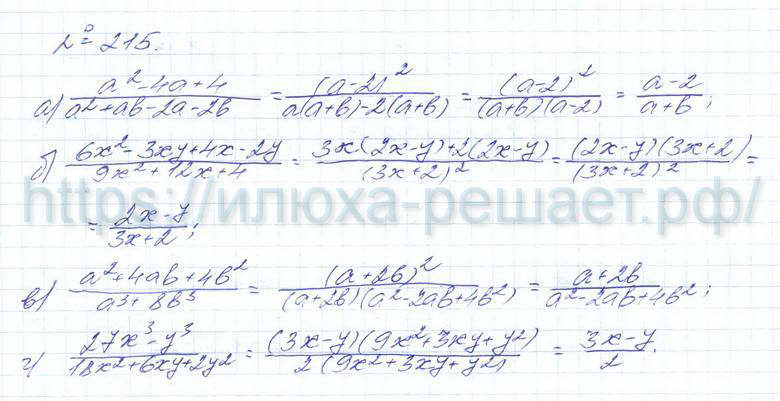 № 215.
а) (a²-4a+4)/(a²+ab-2a-2b) = (a-2)²/(a(a+b)-2(a+b)) = (a-2)²/((a+b)(a-2)) = (a-2)/(a+b);
б) (6x²-3xy+4x-2y)/(9x²+12x+4) = (3x(2x-y)+2(2x-y))/(3x+2)² = ((2x-y)(3x+2))/(3x+2)² =
https://илюха-решает.рф/
= (2x-y)/(3x+2);
в) (a²+4ab+4b²)/(a³+8b³) = (a+2b)²/((a+2b)(a²-2ab+4b²)) = (a+2b)/(a²-2ab+4b²);
г) (27x³-y³)/(18x²+6xy+2y²) = ((3x-y)(9x²+3xy+y²))/(2(9x²+3xy+y²)) = (3x-y)/2.